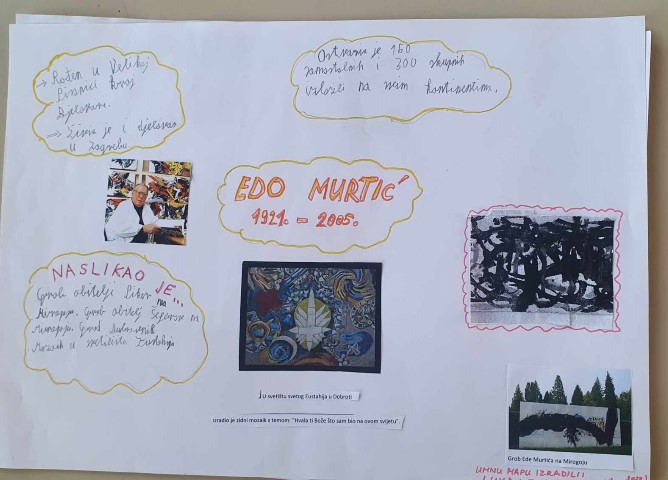 → Rođen u Velikoj
Pisanici kraj
Bjelovara.
→ Živio je i djelovao
u Zagrebu
Ostvario je 150
samostalnih i 300 skupnih
izložbi na svim kontinentima.
EDO MURTIĆ
1921. - 2005.
NASLIKAO JE...
Grob obitelji na
Mirogoju. Grob obitelj
Mirogoju. Grob
Mozaik u svetištu Eustahija
U svetištu svetog Eustahija u Dobroti
izradio je zidni mozaik s temom: "Hvala ti Bože što sam bio na ovom svijetu".
Grob Ede Murtića na Mirogoju
UMNU MAPU IZRADILI: